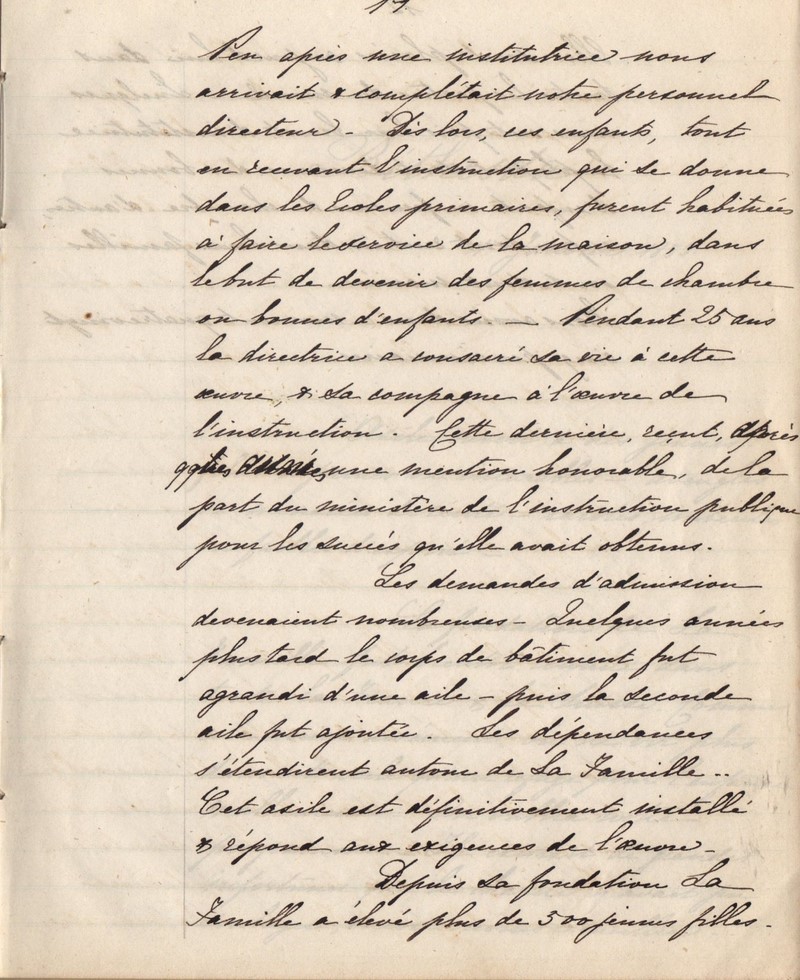 Peu après une institutrice nous
arrivait & complétait notre personnel
directeur - Dès lors, ces enfants, tout
en recevant l'instruction qui se donne
dans les Ecoles primaires, furent habituées
à faire le service de la maison, dans
le but de devenir des femmes de chambre
ou bonnes d'enfants. — Pendant 25 ans
la directrice a consacré sa vie à cette
œuvre, & sa compagne à l'œuvre de
l'instruction. Cette dernière, reçut, après
qques années, une mention honorable, de la
part du ministère de l'instruction publique
pour les succés qu'elle avait obtenus.
Les demandes d'admission
devenaient nombreuses - Quelques années
plus tard le corps de bâtiment fut
agrandi d'une aile - puis la seconde
aile fut ajoutée. Les dépendances
s'étendirent autour de La Famille ..
Cet asile est définitivement installé
& répond aux exigences de l'œuvre -
Depuis sa fondation La
Famille a élevé plus de 500 jeunes filles.